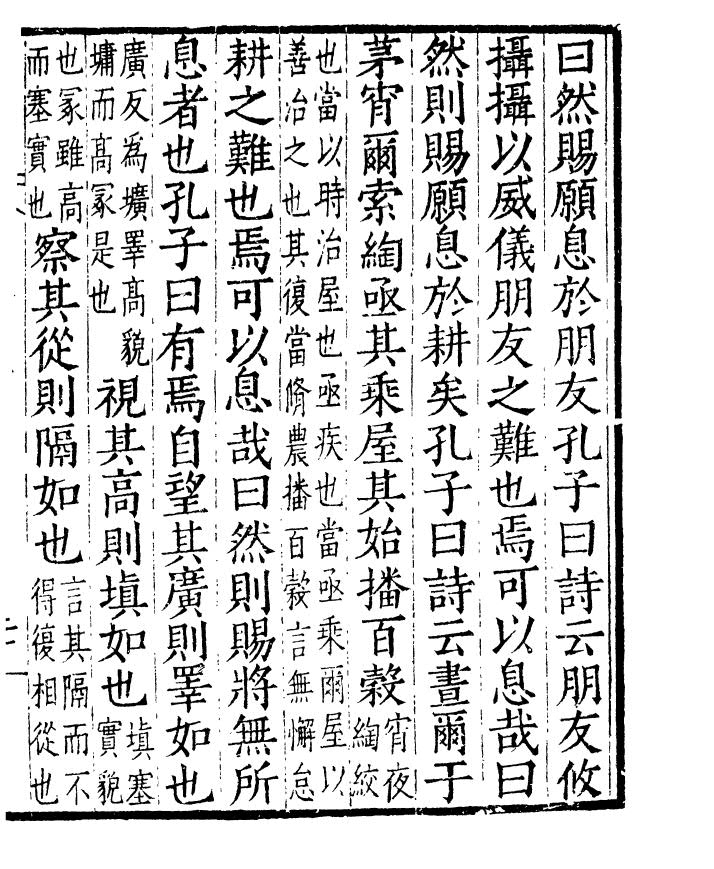 曰然賜願息於朋友孔子曰詩云朋友攸
攝攝以威儀朋友之難也焉可以息哉曰
然則賜願息於耕矣孔子曰詩云晝爾于
茅宵爾索綯亟其乘屋其始播百穀宵夜綯絞
也當以時治屋也亟疾也當亟乘爾屋以
善治之也其復當脩農播百穀言無懈怠
耕之難也焉可以息哉曰然則賜將無所
息者也孔子曰有焉自望其廣則睪如也
廣反為壙睪高貌墉而高冢是也視其高則塡如也塡塞實貌
也冢雖高而塞實也察其從則隔如也言其隔而不得復相從也